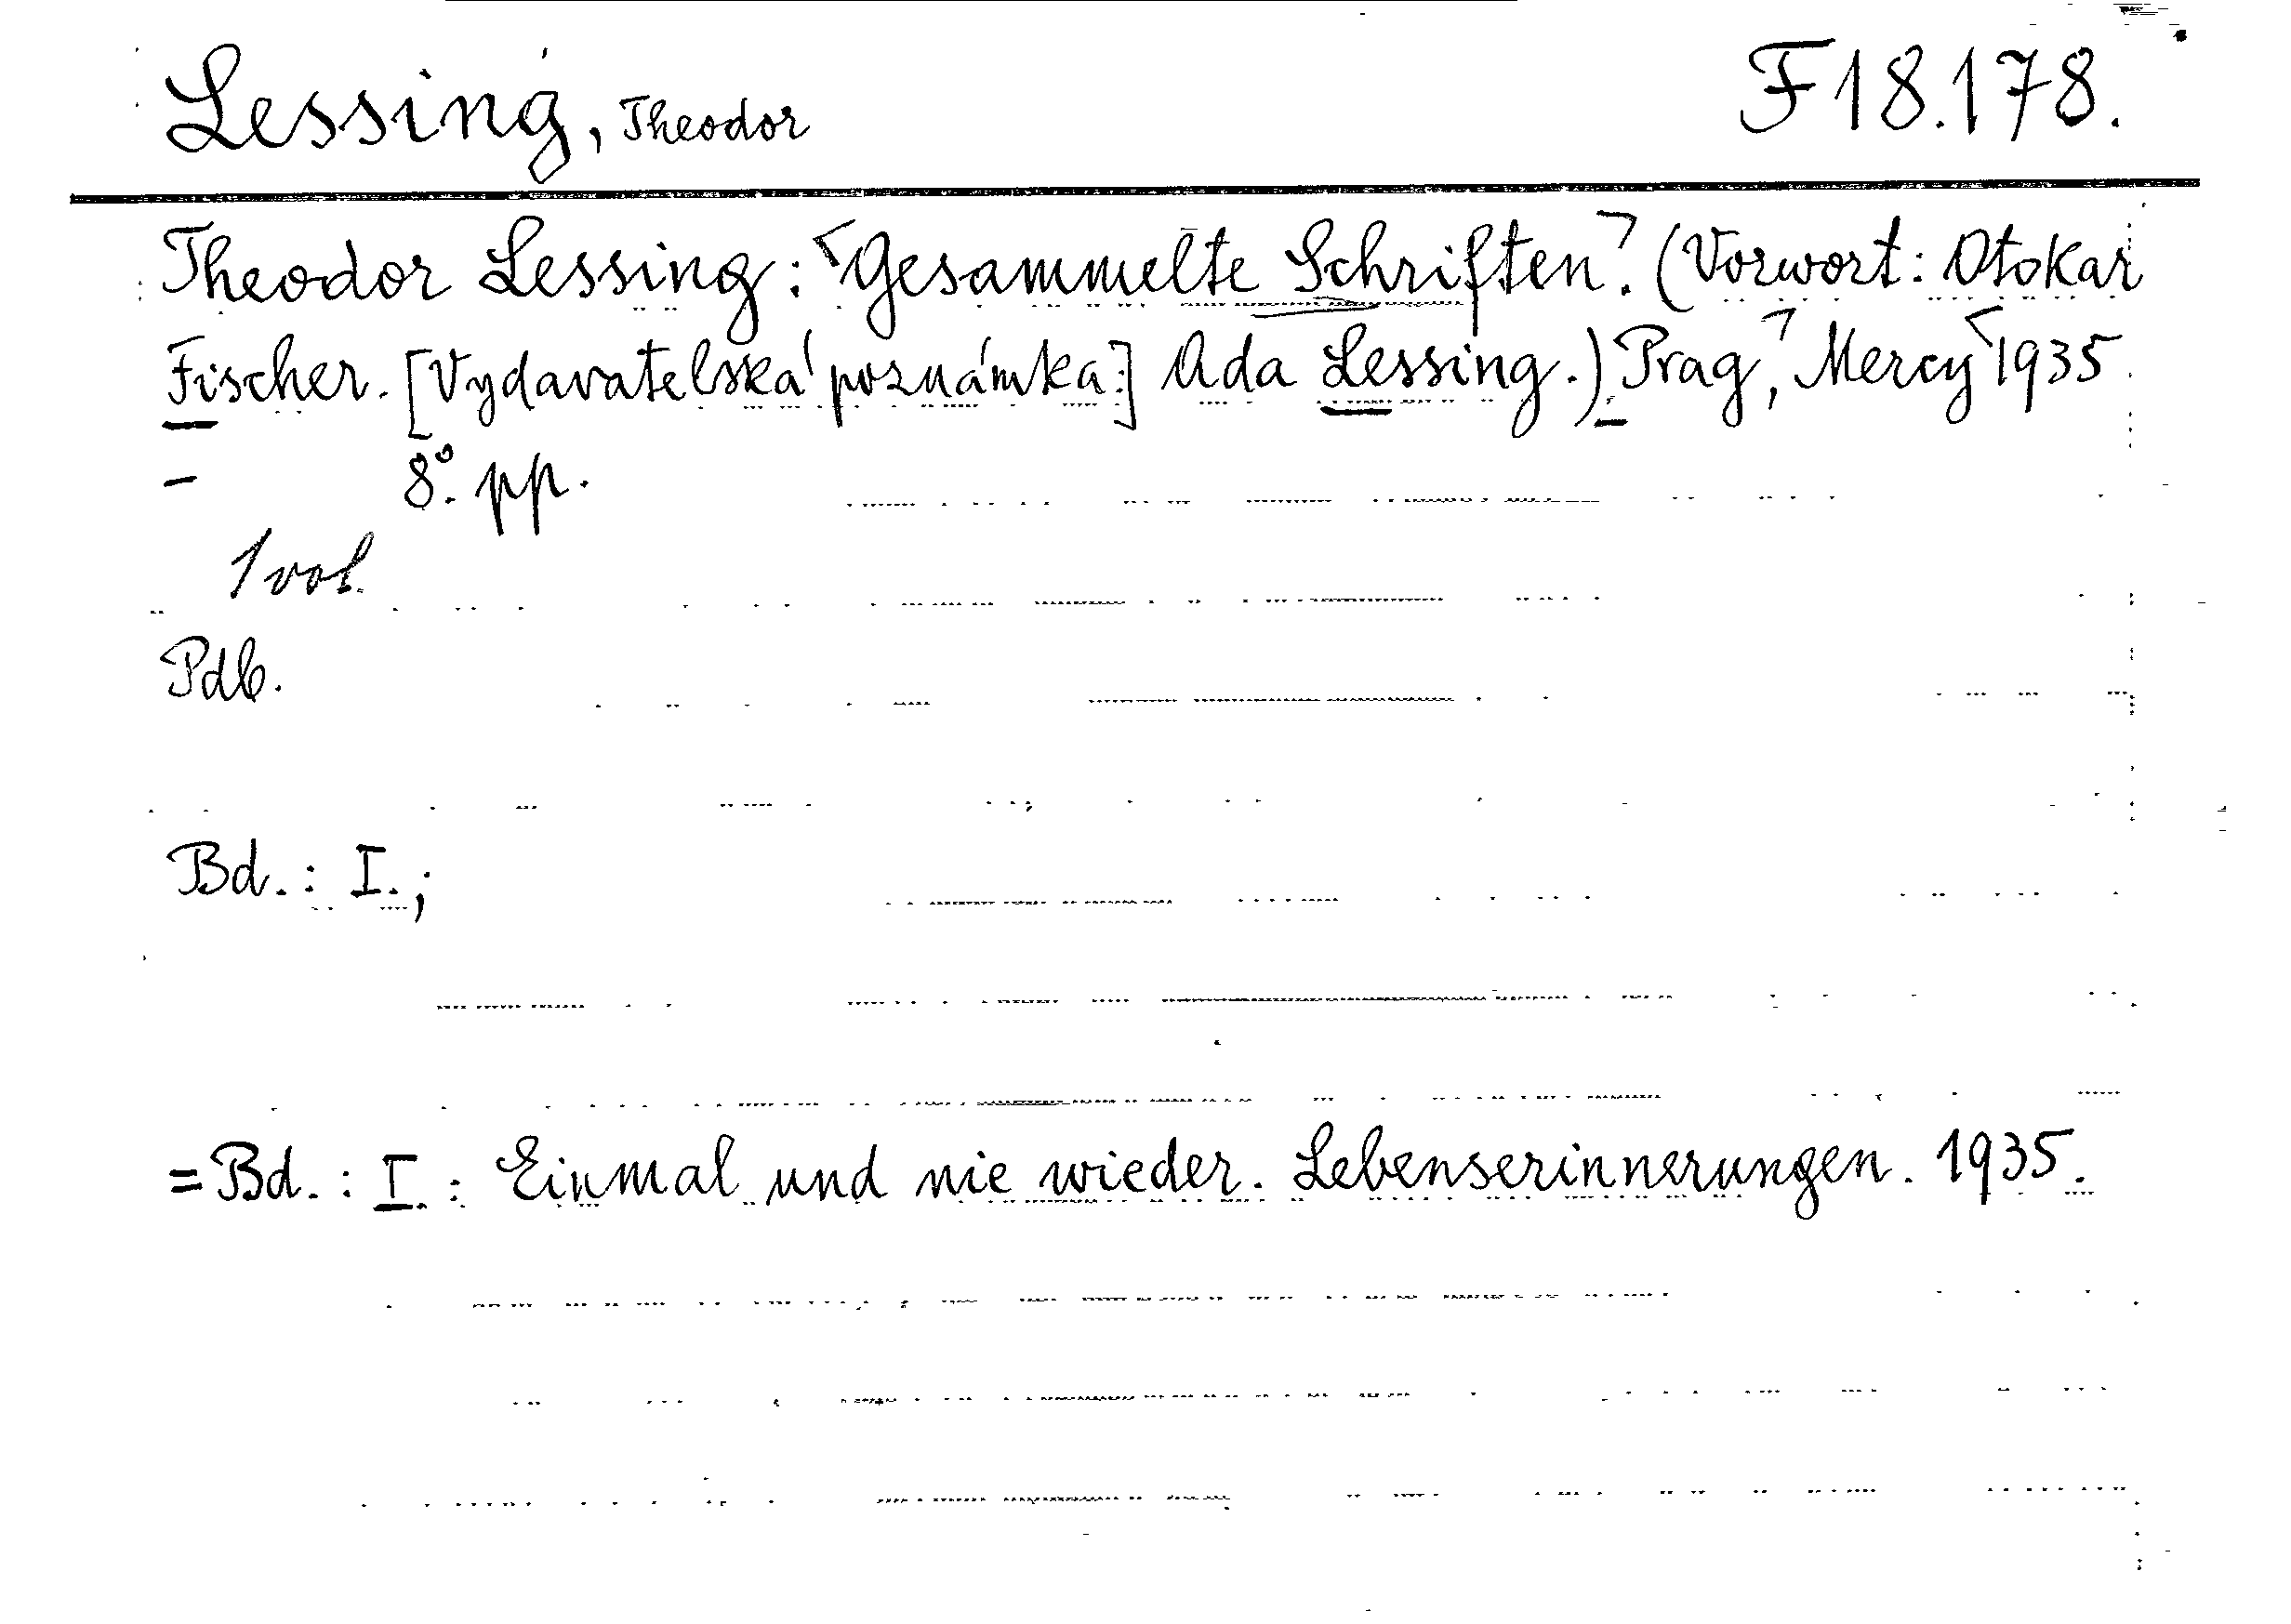 Lessing, Theodor F 18.178.
Theodor Lessing: Gesammelte Schriften. (Vorwort: Otokar
Fischer. [Vydavatelská poznámka:] Ada Lessing.) Prag, Mercy 1935
- 8°. pp.
1 vol.
Pdb.
Bd.: I.;
=Bd.: I.: Einmal und nie wieder. Lebenserinnerungen. 1935.